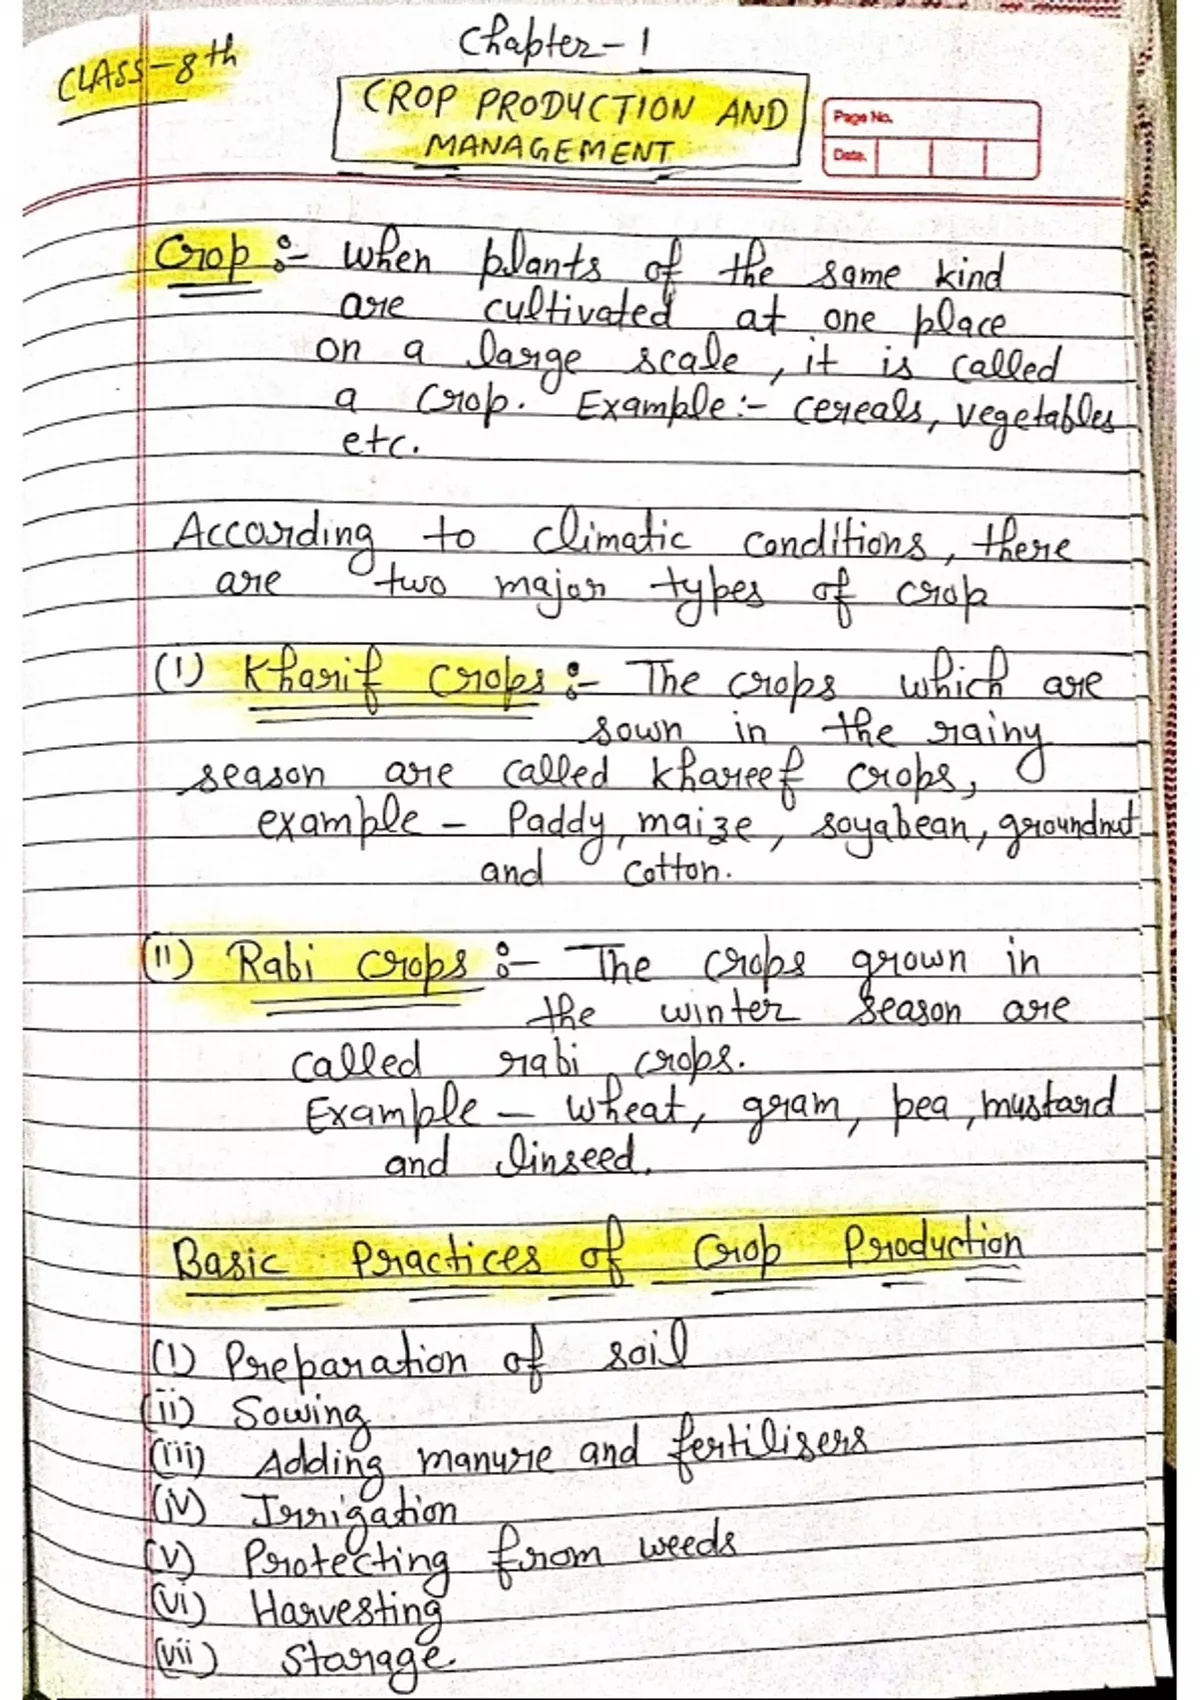 Chapter-1
CLASS-8th
CROP PRODUCTION AND
MANAGEMENT
Page No.
Date.
Crop :- when plants of the same kind
are cultivated at one place
on a large scale, it is called
a crop. Example:- cereals, vegetables
etc.
According to climatic conditions, there
are two major types of crop
(i) Kharif crops :- The crops which are
sown in the rainy
season are called khareef crops,
example - Paddy, maize, soyabean, groundnut
and cotton.
(ii) Rabi crops :- The crops grown in
the winter season are
called rabi crops.
Example - wheat, gram, pea, mustard
and linseed.
Basic Practices of Crop Production
(i) Preparation of soil
(ii) Sowing
(iii) Adding manure and fertilisers
(iv) Irrigation
(v) Protecting from weeds
(vi) Harvesting
(vii) Storage